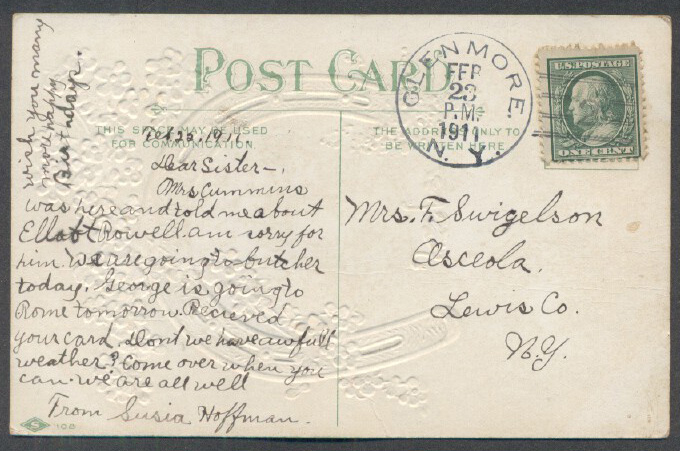 POST CARD
THIS SPACE MAY BE USED
FOR COMMUNICATION
THE ADDRESS ONLY TO
BE WRITTEN HERE
GLENMORE.
FEB
23
P.M.
1911
N. Y.
U.S. POSTAGE
ONE CENT
Feb 23, 1911
Dear Sister-,
Mrs Cummins
was here and told me about
Rowell. am sorry for
him. We are going to butcher
today. George is going to
Rome tomorrow. Recieved
your card. Dont we have awfull
weather? Come over when you
can. we are all well
From Susia Hoffman.
wish you many
more happy
Birthdays.
Mrs. F. Swigelson
Osceola.
Lewis Co.
N.Y.
S 108